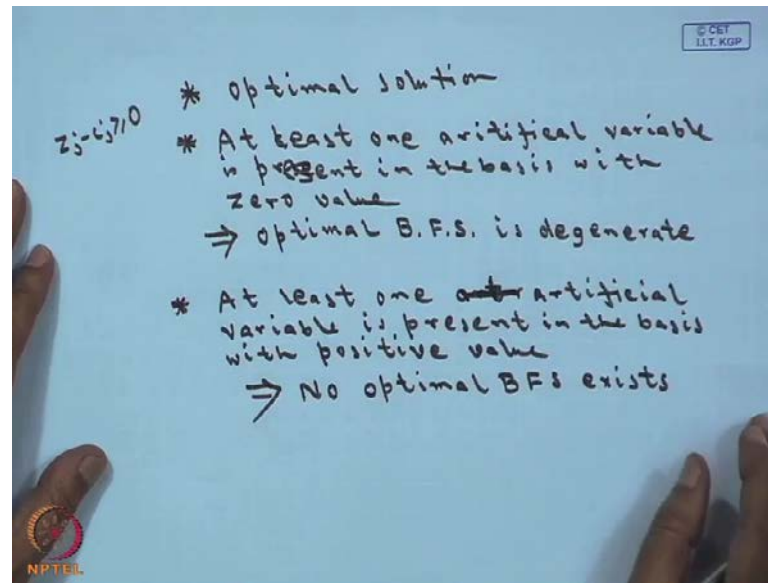 © CET
I.I.T. KGP
* optimal solution
zj-cj≥0
* At least one aritifical variable
is present in the basis with
zero value
⇒ optimal B.F.S. is degenerate
* At least one artificial
variable is present in the basis
with positive value
⇒ No optimal BFS exists
NPTEL